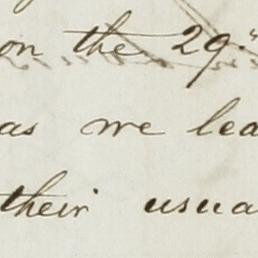 on the 29.th
as we lea
their usua